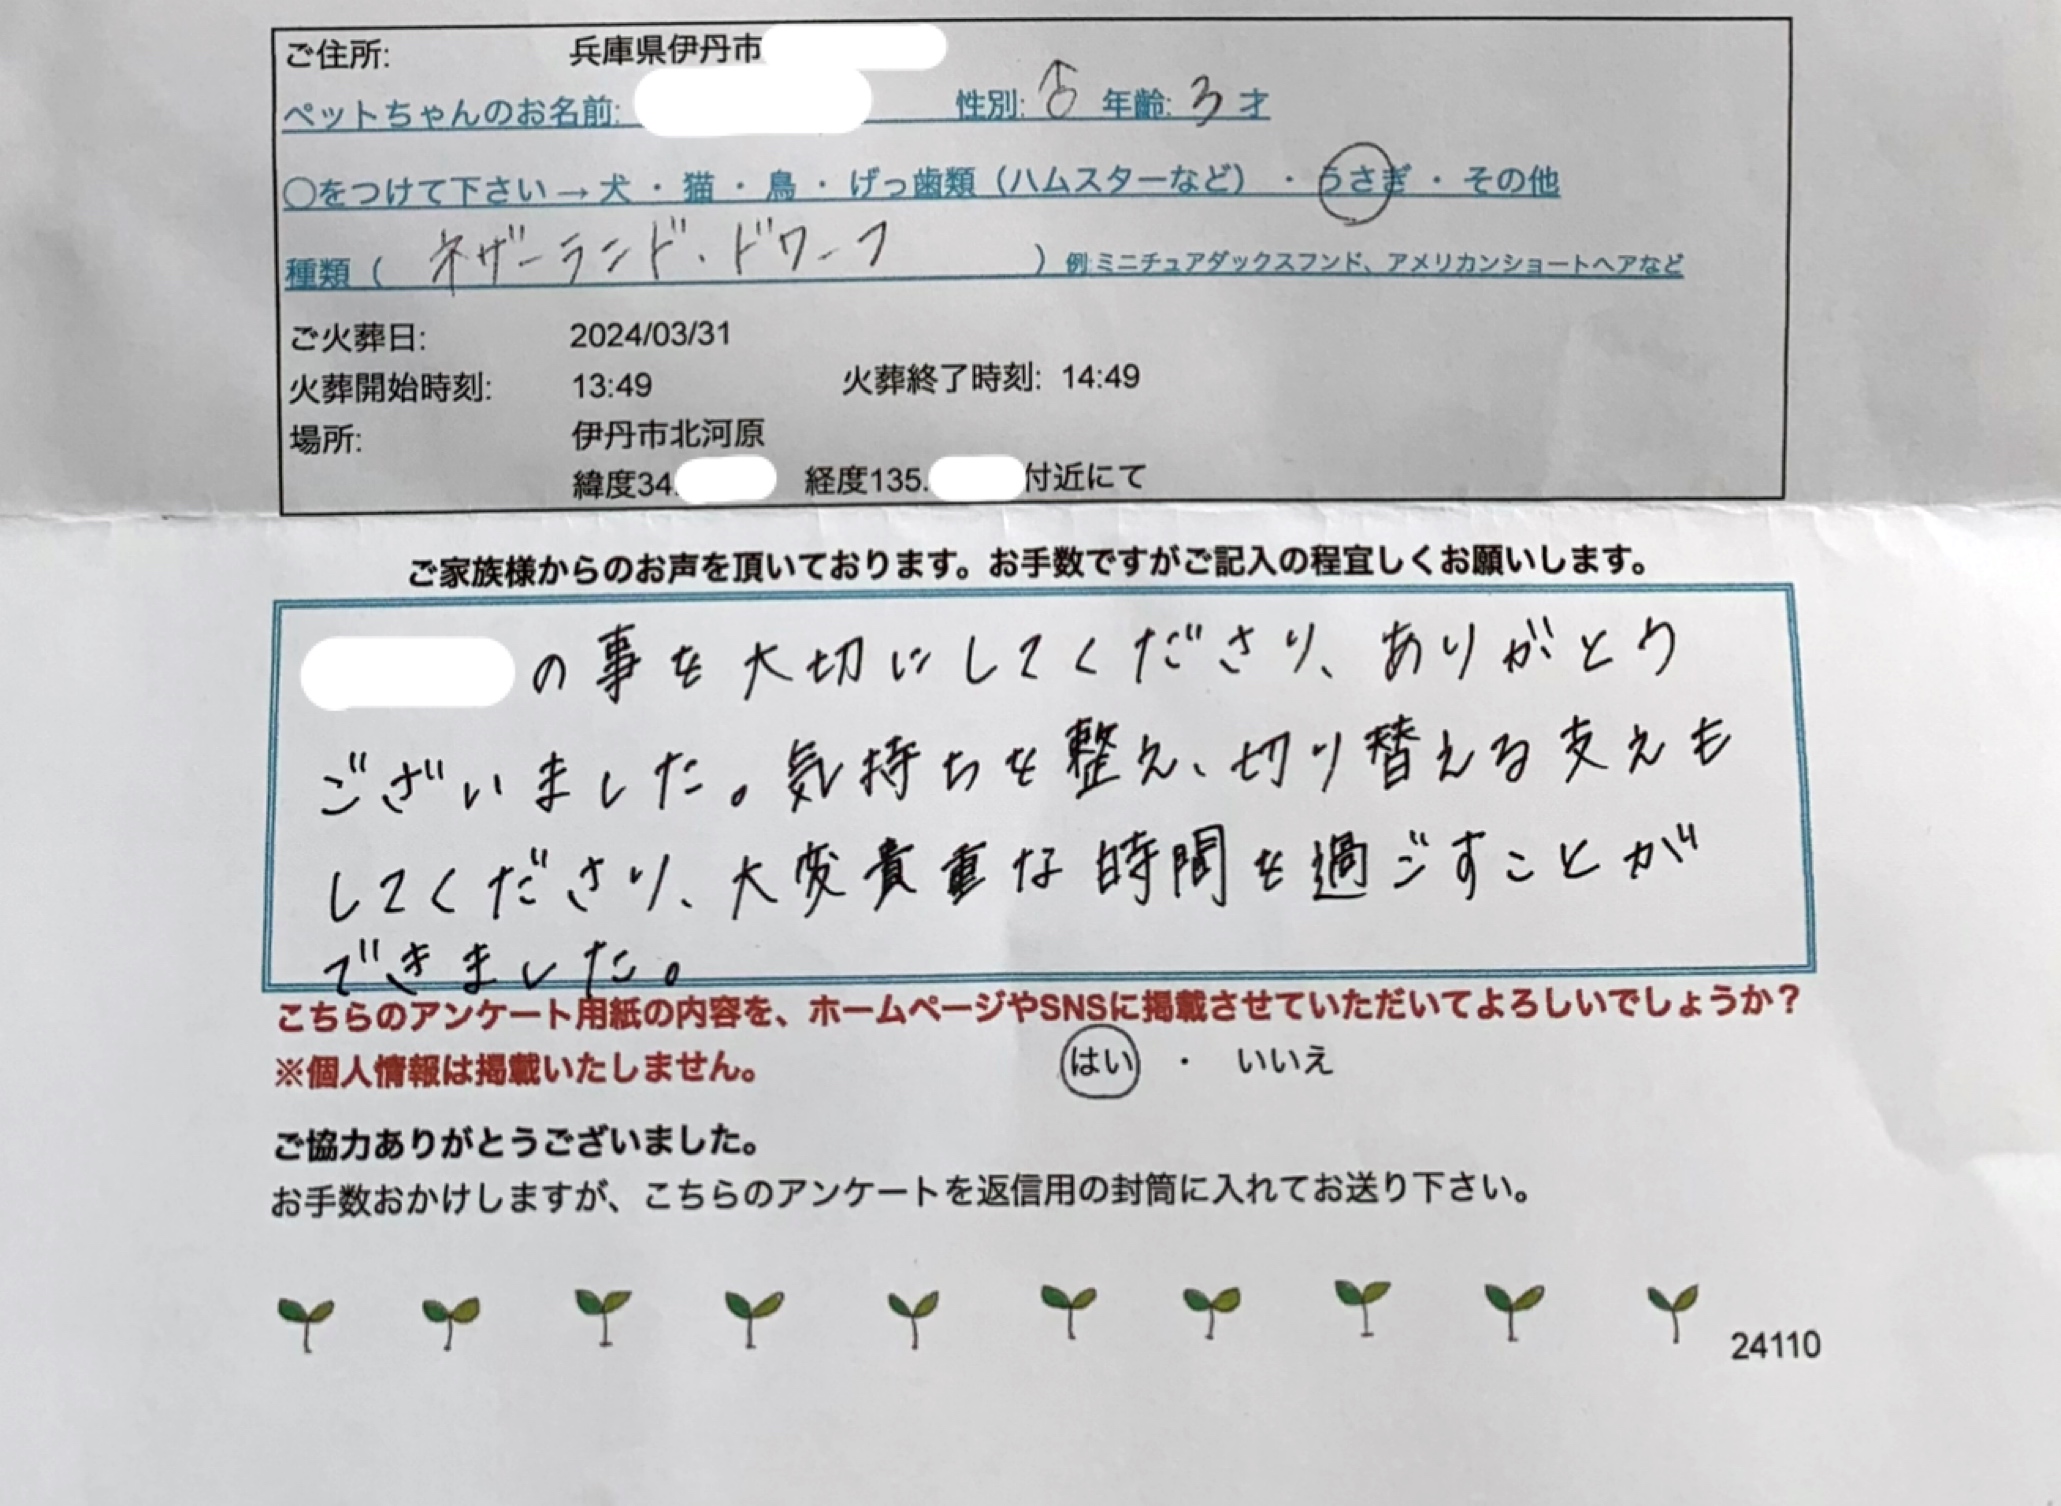 ご住所: 兵庫県伊丹市
ペットちゃんのお名前: 性別: ♂ 年齢: 3 才
○をつけて下さい→犬・猫・鳥・げっ歯類（ハムスターなど）・うさぎ・その他
種類（ ネザーランド・ドワーフ ）例:ミニチュアダックスフンド、アメリカンショートヘアなど
ご火葬日: 2024/03/31
火葬開始時刻: 13:49 火葬終了時刻: 14:49
場所: 伊丹市北河原
緯度34. 経度135. 付近にて
ご家族様からのお声を頂いております。お手数ですがご記入の程宜しくお願いします。
の事を大切にしてくださり、ありがとう
ございました。気持ちを整え、切り替える支えも
してくださり、大変貴重な時間を過ごすことが
できました。
こちらのアンケート用紙の内容を、ホームページやSNSに掲載させていただいてよろしいでしょうか？
※個人情報は掲載いたしません。 はい ・ いいえ
ご協力ありがとうございました。
お手数おかけしますが、こちらのアンケートを返信用の封筒に入れてお送り下さい。
24110